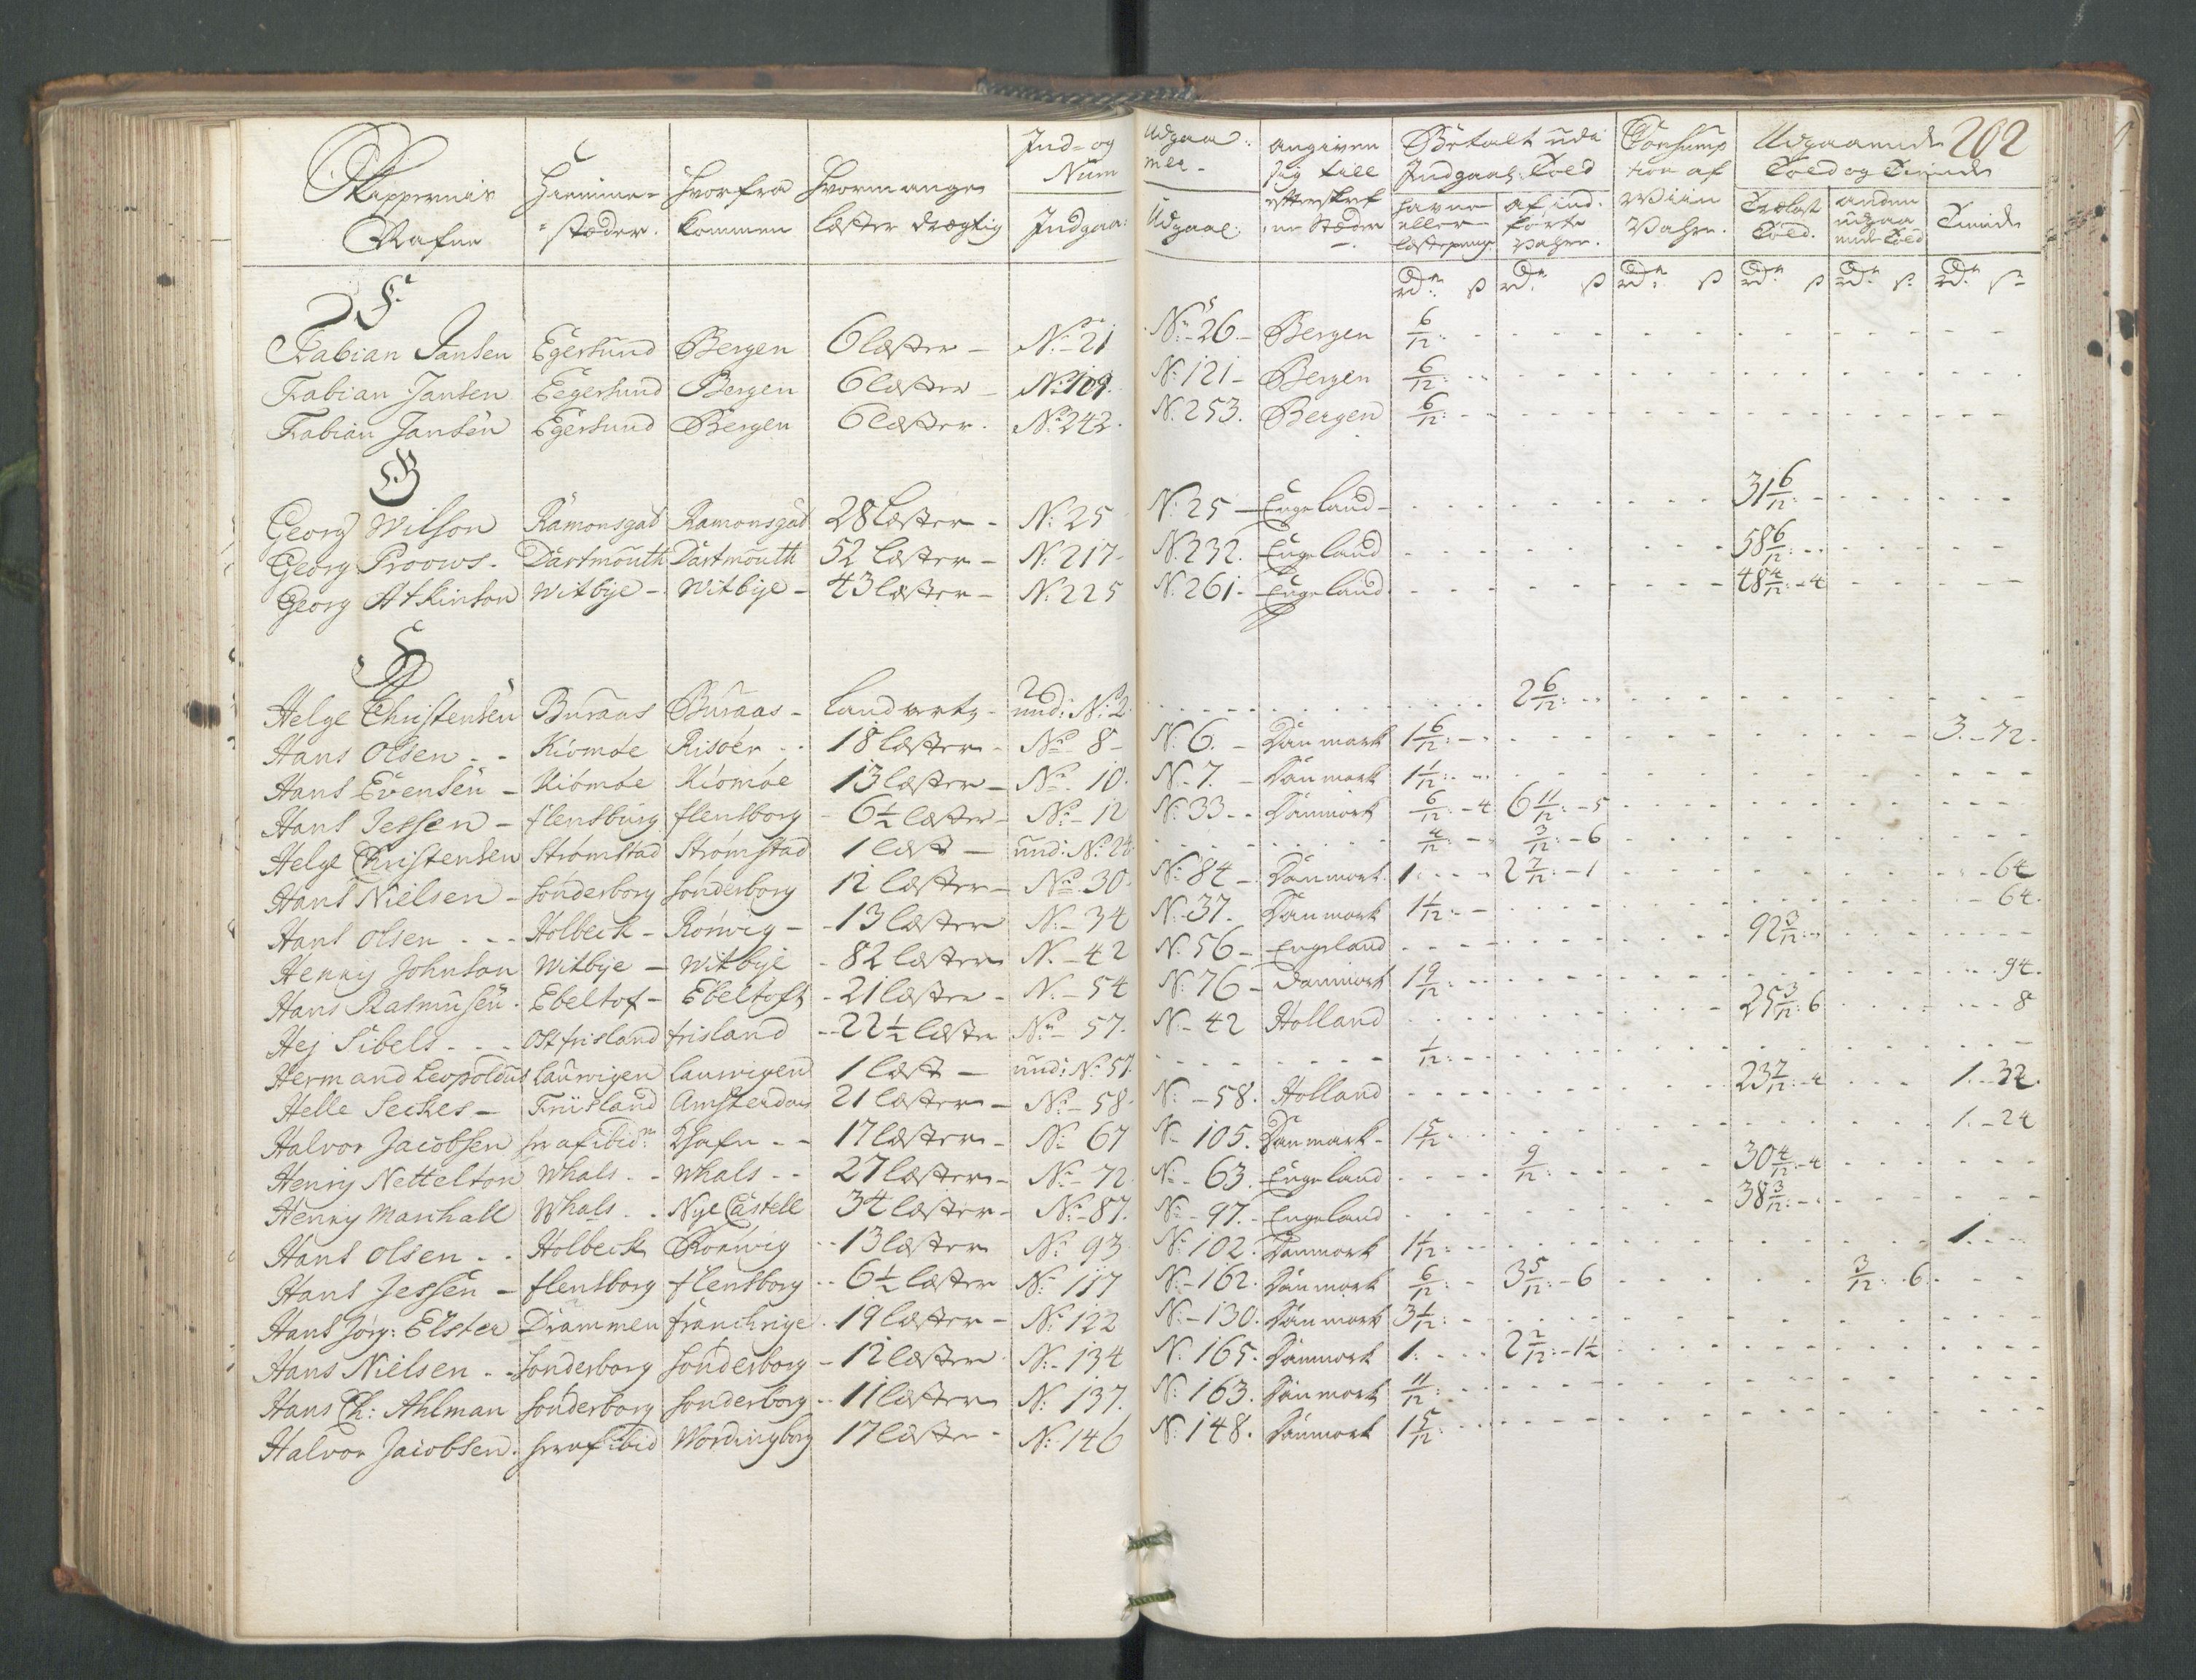 Skippernis Nafne | Hiemme-stæder. | Hvorfra kommen | Hvormange læster drægtig | Ind- og Udgaa: Num mer | angiven sig till efterskrefne Stæder | Betalt udi Indgaae: Told | Consumption af Wiin Vahre. | Udgaaende Told og Tiende | 202
Indgaa: | Udgaae: | havne eller læstepenge | af indførte Vahre. | Trælast Told. | anden udgaaende Told | Tiende
rdr ß | rdr ß | rdr ß | rdr ß | rdr ß | rdr ß
F
Fabian Jansen | Egersund | Bergen | 6 læster | No 21 | No 26 | Bergen | 6/12
Fabian Jansen | Eegersund | Bergen | 6 læster | No 109 | No 121 | Bergen | 6/12
Fabian Jansen | Egersund | Bergen | 6 læster | No 242 | No 253 | Bergen | 6/12
G
Georg Wilson | Ramonsgad | Ramonsgad | 28 læster | No 25 | No 25 | Engeland | 31 6/12
Georg Proows | Dartmouth | Dartmouth | 52 læster | No 217 | No 232 | Engeland | 58 6/12
Georg Atkinson | Witbye | Witbye | 43 læster | No 225 | No 261 | Engeland | 48 4/12 - 4
H
Helge Christensen | Buraas | Buraas | Landverts | und: No 2 | 2 6/12
Hans Olsen | Kiömöe | Risöer | 18 læster | No 8 | No 6 | Danmark | 1 6/12 | 3 - 72
Hans Evensen | Kiömöe | Kiömöe | 13 læster | No 10 | No 7 | Danmark | 1 1/12
Hans Jessen | flensburg | flensborg | 6 1/2 læster | No 12 | No 33 | Danmark | 6/12 - 4 | 6 11/12 - 5
Helge Christensen | Strømstad | Strømstad | 1 læst | und: No 24 | 4/12 | 3/12 - 6
Hans Nielsen | Sonderborg | Sonderborg | 12 læster | No 30 | No 84 | Danmark | 1 | 2 7/12 - 1 | 64
Hans Olsen | Holbeck | Rörwig | 13 læster | No 34 | No 37 | Danmark | 1 1/12 | 64
Henry Johnson | Witbye | Witbye | 82 læster | No 42 | No 56 | Engeland | 92 3/12
Hans Rasmusen | Ebeltof | Ebeltoft | 21 læster | No 54 | No 76 | Danmark | 1 9/12 | 94
Hej Sibels | Ostfrisland | frisland | 22 1/2 læster | No 57 | No 42 | Holland | 25 3/12 6 | 8
Hermand Leopoldus | Laurwigen | Laurwigen | 1 læst | und: No 57 | 1/12
Helle Seckes | Friisland | Amsterdam | 21 læster | No 58 | No 58 | Holland | 23 7/12 - 4 | 1 - 32
Halvor Jacobsen | her af ibid | Khafn | 17 læster | No 67 | No 105 | Danmark | 1 5/12 | 1 - 24
Henry Nettelton | Whals | Whals | 27 læster | No 72 | No 63 | Engeland | 9/12 | 30 4/12 - 4
Henry Marshall | Whals | Nye Castell | 34 læster | No 87 | No 97 | Engeland | 38 3/12
Hans Olsen | Holbeck | Rörwig | 13 læster | No 93 | No 102 | Danmark | 1 1/12 | 1
Hans Jessen | flensborg | flensborg | 6 1/2 læster | No 117 | No 162 | Danmark | 6/12 | 3 5/12 - 6 | 3/12 6
Hans Jørg: Elster | Drammen | franckrige | 19 læster | No 122 | No 130 | Danmark | 3 1/12
Hans Nielsen | Sonderborg | Sonderborg | 12 læster | No 134 | No 165 | Danmark | 1 | 2 2/12 - 1 1/2
Hans Ch: Ahlman | Sonderborg | Sonderborg | 11 læster | No 137 | No 163 | Danmark | 11/12
Halvor Jacobsen | her af ibid | Wordingborg | 17 læster | No 146 | No 148 | Danmark | 1 5/12